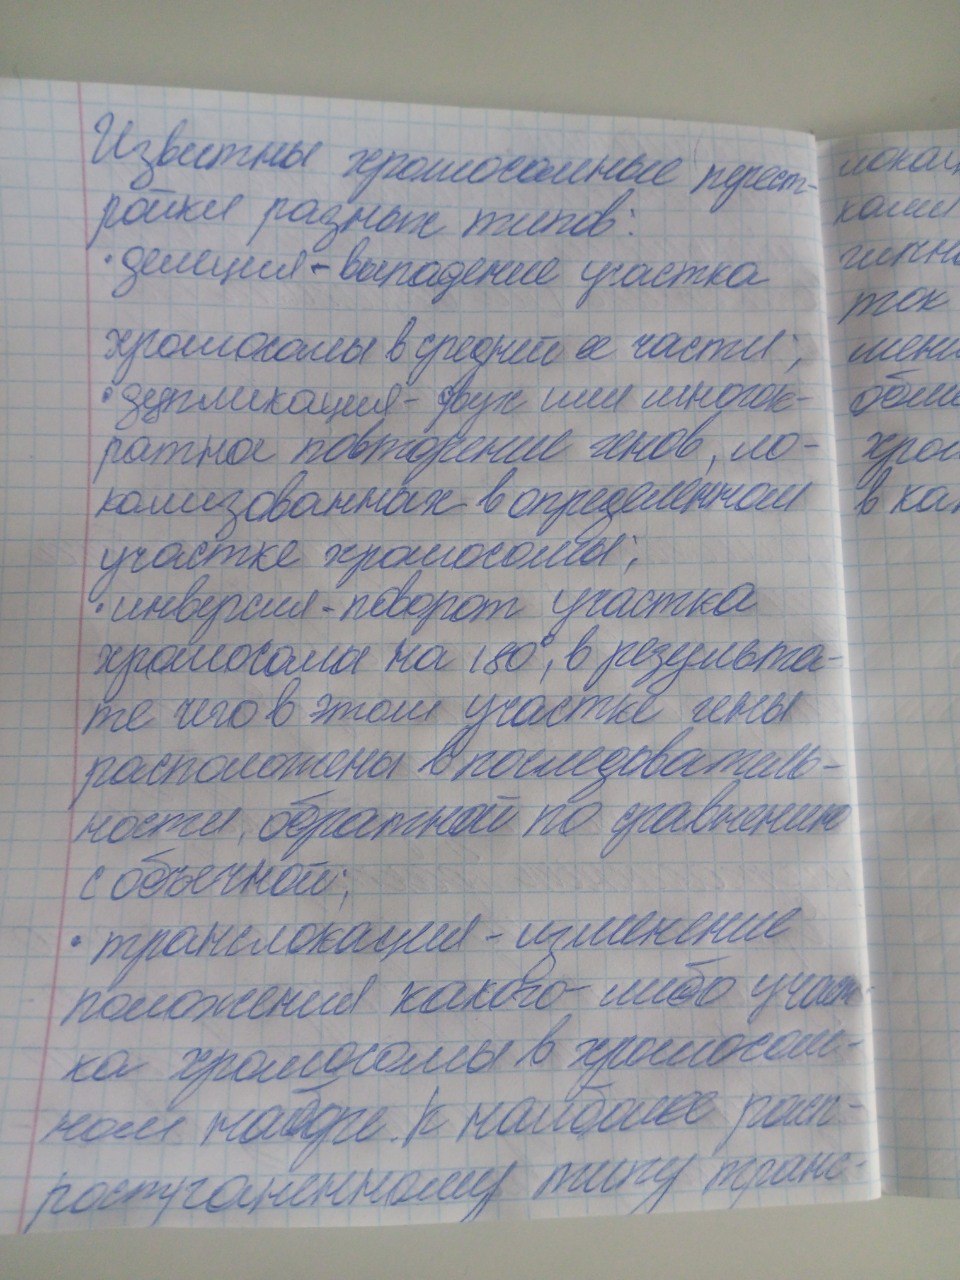 Известны хромосомные перест-
ройки разных типов:
• делеция - выпадение участка
хромосомы в средней ее части;
• дупликация - двух или многок-
ратное повторение генов, ло-
кализованных в определенном
участке хромосомы;
• инверсия - поворот участка
хромосома на 180°, в результа-
те чего в этом участке гены
расположены в последователь-
ности, обратной по сравнению
с обычной;
• транслокация - изменение
положения какого-либо участ-
ка хромосомы в хромосом-
ном наборе. К наиболее расп-
ространенному типу транс-
лока
ками
ток
мен
обме
хром
в ка